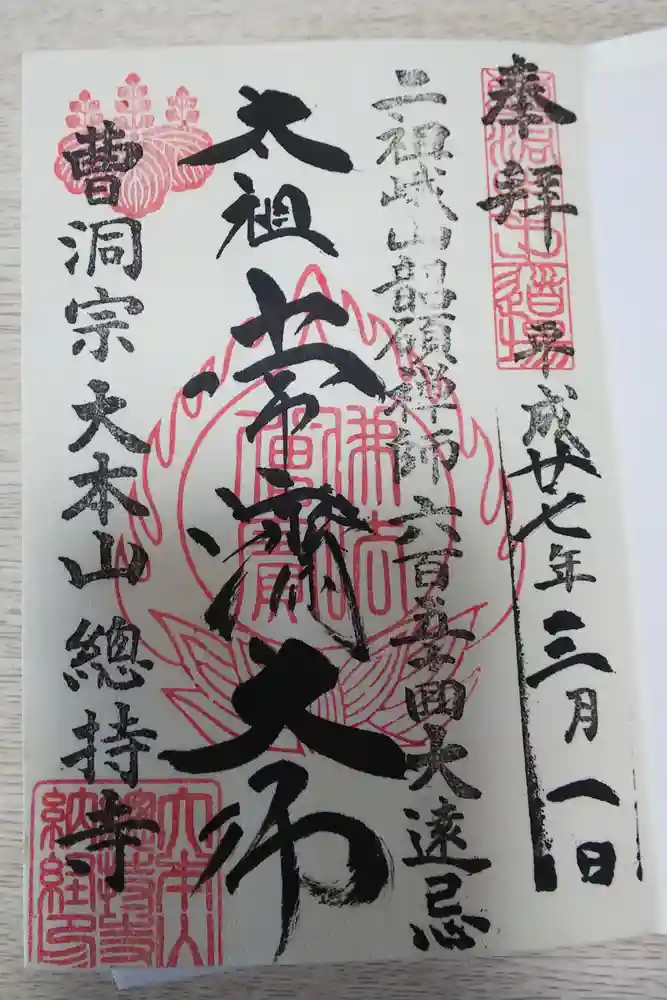 奉拝 平成廿七年三月一日
二祖峨山韶碩禅師 六百五十回大遠忌
太祖常濟大師
曹洞宗大本山總持寺
佛法
僧寶
大本山
總持寺
納経印